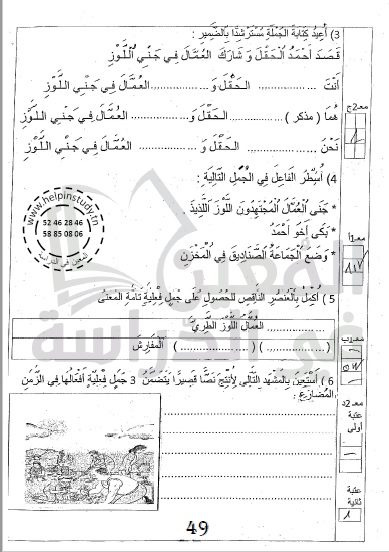 3) أُعِيدُ كِتَابَةَ الْجُمْلَةِ مُسْتَرْشِدًا بِالضَّمِيرِ :
قَصَدَ أَحْمَدُ الْحَقْلَ وَ شَارَكَ الْعُمَّالَ فِي جَنْيِ اللَّوْزِ
أَنْتَ ................ الْحَقْلَ وَ................ الْعُمَّالَ فِي جَنْيِ اللَّوْزِ
هُمَا ( مذكر ) ................ الْحَقْلَ وَ................ الْعُمَّالَ فِي جَنْيِ اللَّوْزِ
نَحْنُ ................ الْحَقْلَ وَ ................ الْعُمَّالَ فِي جَنْيِ اللَّوْزِ
معـ2ج
4) أُسَطِّرُ الْفَاعِلَ فِي الْجُمَلِ التَّالِيَةِ :
* جَنَى الْعُمَّالُ الْمُجْتَهِدُونَ اللَّوْزَ اللَّذِيذَ
* بَكَى أَخُو أَحْمَدَ
* وَضَعَ الْجَمَاعَةُ الصَّنَادِيقَ فِي الْمَخْزَنِ
معـ1أ
www.helpinstudy.tn
52 46 28 46
58 85 08 06
المعين في الدراسة
5 ) أُكْمِلُ بِالْعُنْصُرِ النَّاقِصِ لِلْحُصُولِ عَلَى جُمَلٍ فِعْلِيَّةٍ تَامَّةِ الْمَعْنَى
................ الْعُمَّالُ اللَّوْزَ الطَّرِيَّ
(................) (................) الْمَفَارِشَ
6 ) أَسْتَعِينُ بِالْمَشْهَدِ التَّالِي لِأُنْتِجَ نَصًّا قَصِيرًا يَتَضَمَّنُ 3 جُمَلٍ فِعْلِيَّةٍ أَفْعَالُهَا فِي الزَّمَنِ
الْمُضَارِعِ :
معـ2د
عتبة
أولى
عتبة
ثانية
49